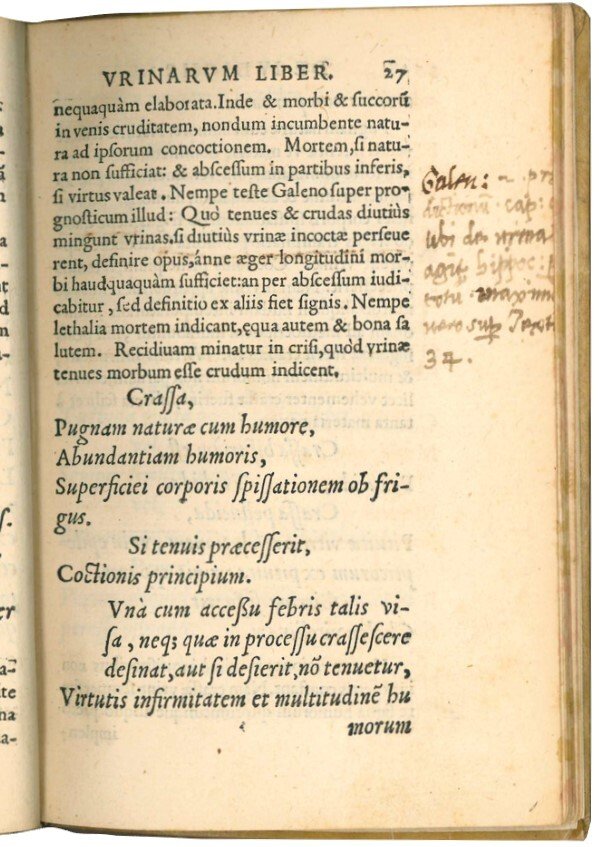 VRINARVM LIBER. 27
nequaquàm elaborata. Inde & morbi & succorũ
in venis cruditatem, nondum incumbente natu-
ra ad ipsorum concoctionem. Mortem, si natu-
ra non sufficiat: & abscessum in partibus inferis,
si virtus valeat. Nempe teste Galeno super pro-
gnosticum illud: Quò tenues & crudas diutiùs
mingunt vrinas. si diutiùs vrinæ incoctæ perseue
rent, definire opus, ánne æger longitudini mor-
bi haudquaquàm sufficiet: an per abscessum iudi-
cabitur, sed definitio ex aliis fiet signis. Nempe
lethalia mortem indicant, ęqua autem & bona sa
lutem. Recidiuam minatur in crisi, quòd vrinæ
tenues morbum esse crudum indicent.
Crassa,
Pugnam naturæ cum humore,
Abundantiam humoris,
Superficiei corporis spissationem ob fri-
gus.
Si tenuis præcesserit,
Coctionis principium.
Vnà cum accessu febris talis vi-
sa, neq; quæ in processu crassescere
desinat, aut si desierit, nõ tenuetur,
Virtutis infirmitatem et multitudinẽ hu
morum
Galen:
cap:
ubi de urina
agit hippoc:
maxim
34.